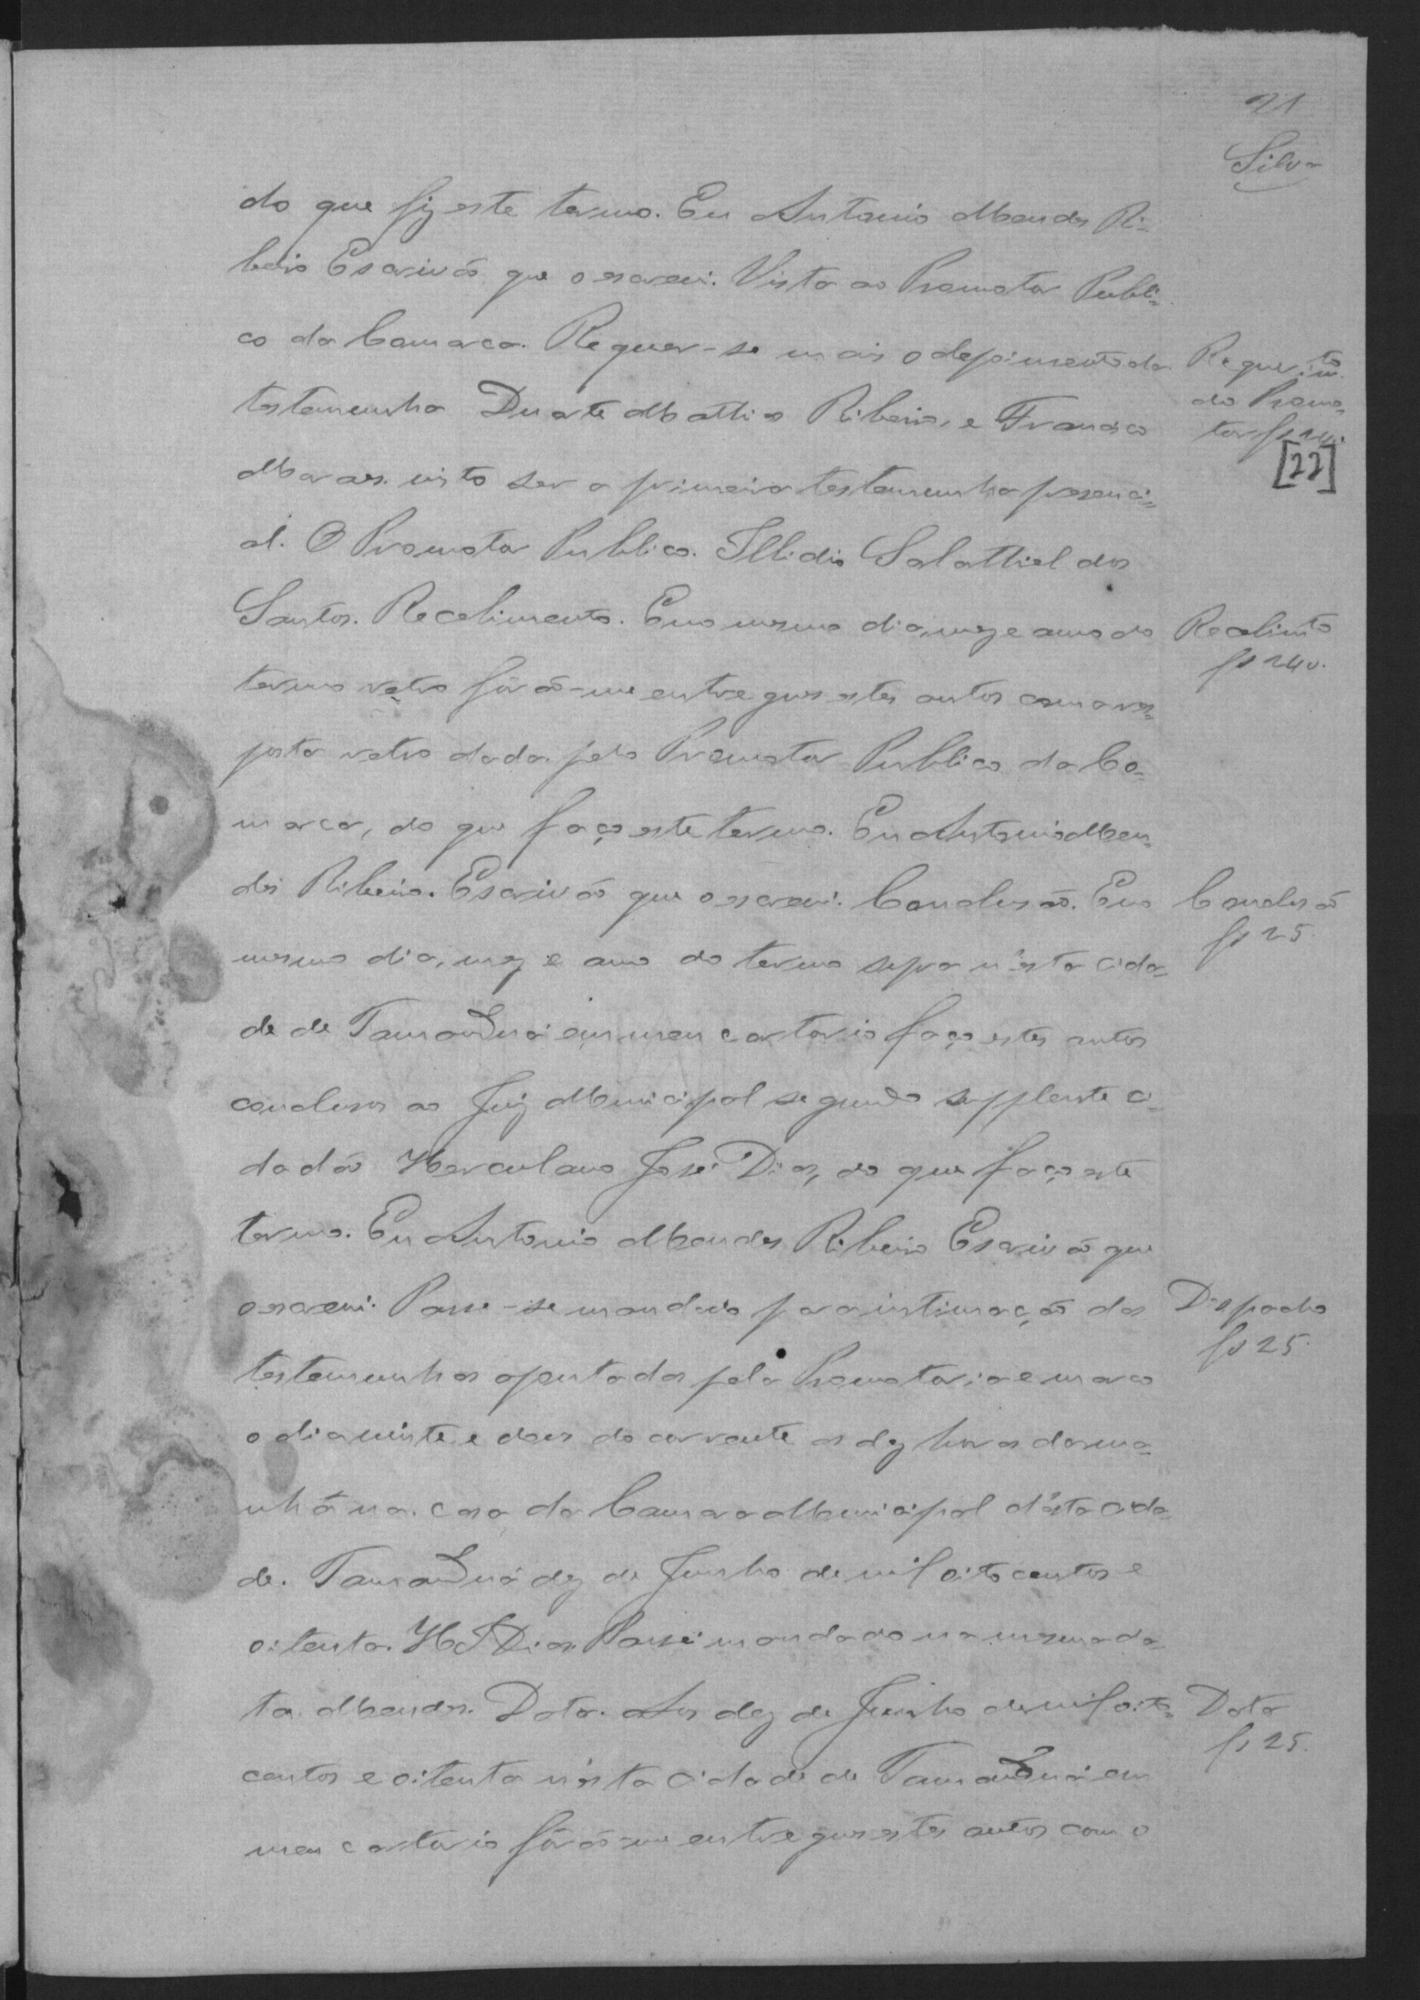 21
Silva
do que fiz este termo. Eu Antonio Mendes Ri-
beiro Escrivão que o escrevi. Vista ao Promotor Publi-
co da Comarca. Requer-se mais o depoimento da
Requerim.to
do Promo-
tor fs 24v.
[22]
testemunha Duarte Mathias Ribeiro, e Francisco
visto ser a primeira testemunha presenci-
al. O Promotor Publico. Illidio Salathiel dos
Santos. Recebimento. E no mesmo dia, mez e anno do
Recebimto
fs 24v.
termo retro fôrão-me entregues estes autos com a res-
posta retro dada pelo Promotor Publico da Co-
marca, do que faço este termo. Eu Antonio Men-
des Ribeiro. Escrivão que o escrevi. Conclusão. E no
Conclusão
fs 25.
mesmo dia, mez e anno do termo supra n'esta cida-
de de Tamanduá em meu cartorio faço estes autos
conclusos ao Juiz Municipal segundo supplente ci-
dadão Herculano José Dias, do que faço este
termo. Eu Antonio Mendes Ribeiro Escrivão que
o escrevi. Passe-se mandado para intimação das
Despacho
fs 25.
testemunhas apontadas pela Promotoria e marco
o dia vinte e dous do corrente as dez horas da ma-
nhã na casa da Camara Municipal d'esta cida-
de. Tamanduá dez de Junho de mil oitocentos e
oitenta. H J Dias. Passei mandado na mesma da-
ta. Mendes. Data. Aos dez de Junho de mil oito-
Data
fs 25.
centos e oitenta n'esta cidade de Tamanduá em
meu cartorio fôrão-me entregues estes autos com o